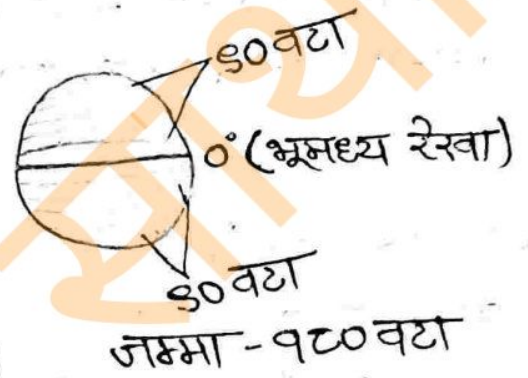 ९० वटा
०° (भूमध्य रेखा)
९० वटा
जम्मा - १८० वटा